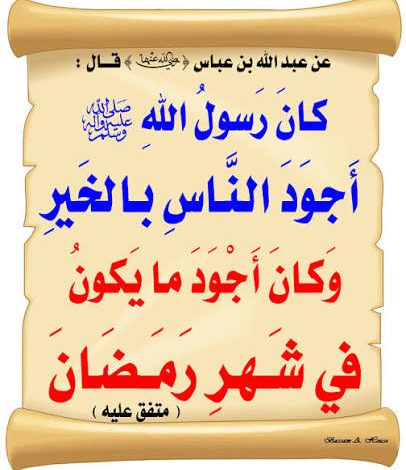 عن عبد الله بن عباس ﴿ رضي الله عنهما ﴾ قال :
كَانَ رَسولُ اللهِ ﷺ
أَجوَدَ النَّاسِ بالخَيرِ
وَكانَ أَجْوَدَ ما يَكونُ
في شَهرِ رَمَضَانَ
( متفق عليه )
Bassam A. Hinawi